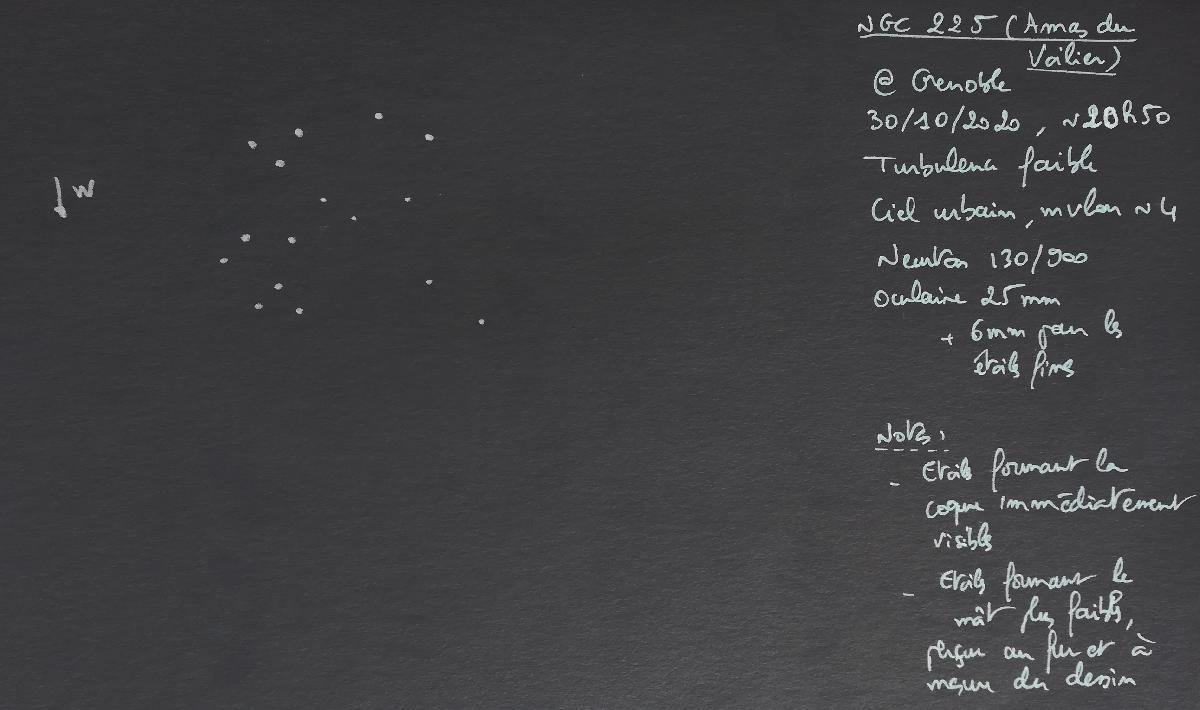 W
NGC 225 (Amas du
Voilier)
@ Grenoble
30/10/2020, ~20h50
Turbulence faible
Ciel urbain, mvlon ~4
Newton 130/900
Oculaire 25mm
+ 6mm pour les
étoiles fines
Notes:
- Etoiles formant la
coque immédiatement
visibles
- Etoiles formant le
mât plus faibles,
perçues au fur et à
mesure du dessin